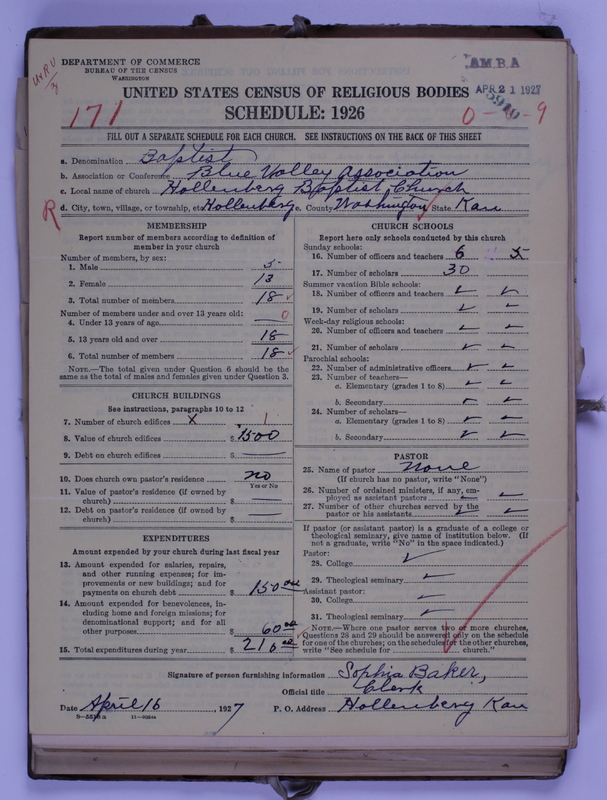 DEPARTMENT OF COMMERCE
BUREAU OF THE CENSUS
WASHINGTON
AM.B.A
APR 21 1927
UNITED STATES CENSUS OF RELIGIOUS BODIES
171 SCHEDULE: 1926
FILL OUT A SEPARATE SCHEDULE FOR EACH CHURCH. SEE INSTRUCTIONS ON THE BACK OF THIS SHEET
a. Denomination Baptist
b. Association or Conference Blue Valley Association
c. Local name of church Hollenberg Baptist Church
R d. City, town, village, or township, etc Hollenberg e. County Washington State Kan
MEMBERSHIP
Report number of members according to definition of
member in your church
Number of members, by sex:
1. Male 5
2. Female 13
3. Total number of members 18
Number of members under and over 13 years old:
4. Under 13 years of age 0
5. 13 years old and over 18
6. Total number of members 18
NOTE.—The total given under Question 6 should be the
same as the total of males and females given under Question 3.
CHURCH BUILDINGS
See instructions, paragraphs 10 to 12
7. Number of church edifices X 1
8. Value of church edifices $ 1500
9. Debt on church edifices $
10. Does church own pastor's residence no
Yes or No
11. Value of pastor's residence (if owned by
church) $
12. Debt on pastor's residence (if owned by
church) $
EXPENDITURES
Amount expended by your church during last fiscal year
13. Amount expended for salaries, repairs,
and other running expenses; for im-
provements or new buildings; and for
payments on church debt $ 150 00
14. Amount expended for benevolences, in-
cluding home and foreign missions; for
denominational support; and for all
other purposes $ 60 00
15. Total expenditures during year $ 210 00
CHURCH SCHOOLS
Report here only schools conducted by this church
Sunday schools:
16. Number of officers and teachers 6 5
17. Number of scholars 30
Summer vacation Bible schools:
18. Number of officers and teachers
19. Number of scholars
Week-day religious schools:
20. Number of officers and teachers
21. Number of scholars
Parochial schools:
22. Number of administrative officers
23. Number of teachers—
a. Elementary (grades 1 to 8)
b. Secondary
24. Number of scholars—
a. Elementary (grades 1 to 8)
b. Secondary
PASTOR
25. Name of pastor None
(If church has no pastor, write "None")
26. Number of ordained ministers, if any, em-
ployed as assistant pastors
27. Number of other churches served by the
pastor or his assistants
If pastor (or assistant pastor) is a graduate of a college or
theological seminary, give name of institution below. (If
not a graduate, write "No" in the space indicated.)
Pastor:
28. College
29. Theological seminary
Assistant pastor:
30. College
31. Theological seminary
NOTE.—Where one pastor serves two or more churches,
Questions 28 and 29 should be answered only on the schedule
for one of the churches; on the schedules for the other churches,
write "See schedule for church."
Signature of person furnishing information Sophia Baker,
Official title Clerk
Date April 16, 1927 P. O. Address Hollenberg Kan